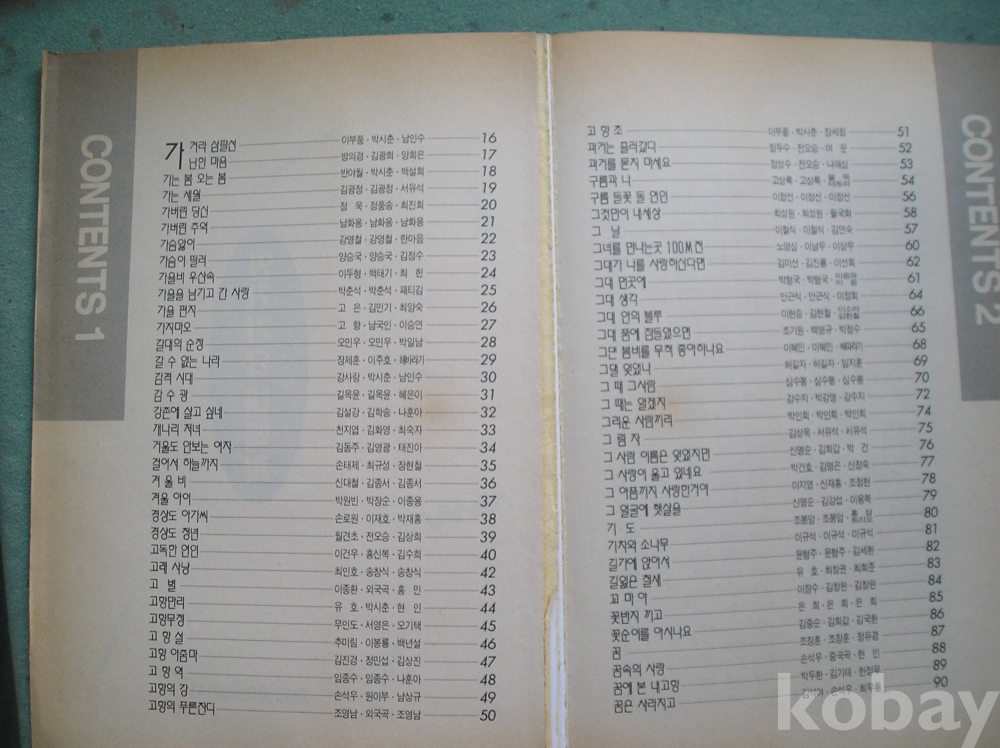 CONTENTS 1
가거라 삼팔선 이부풍·박시춘·남인수 16
가난한 마음 방의경·김광희·양희은 17
가는 봄 오는 봄 반야월·박시춘·백설희 18
가는 세월 김광정·김광정·서유석 19
가버린 당신 정 욱·정풍송·최진희 20
가버린 추억 남화용·남화용·남화용 21
가슴앓이 강영철·강영철·한마음 22
가슴이 떨려 양승국·양승국·김정수 23
가을비 우산속 이두형·백태기·최 헌 24
가을을 남기고 간 사랑 박춘석·박춘석·패티김 25
가을 편지 고 은·김민기·최양숙 26
가지마오 고 향·남국인·이승연 27
갈대의 순정 오민우·오민우·박일남 28
갈 수 없는 나라 장제훈·이주호·해바라기 29
감격 시대 강사랑·박시춘·남인수 30
감 수 광 길옥윤·길옥윤·혜은이 31
강촌에 살고 싶네 김설강·김학송·나훈아 32
개나리 처녀 천지엽·김화영·최숙자 33
거울도 안보는 여자 김동주·김영광·태진아 34
걸어서 하늘까지 손태제·최규성·장현철 35
겨 울 비 신대철·김종서·김종서 36
겨울 아이 박원빈·박장순·이종용 37
경상도 아가씨 손로원·이재호·박재홍 38
경상도 청년 월견초·전오승·김상희 39
고독한 연인 이건우·홍신복·김수희 40
고래 사냥 최인호·송창식·송창식 42
고 별 이종환·외국곡·홍 민 43
고향만리 유 호·박시춘·현 인 44
고향무정 무인도·서영은·오기택 45
고 향 설 추미림·이봉룡·백년설 46
고향 아줌마 김진경·정민섭·김상진 47
고 향 역 임종수·임종수·나훈아 48
고향의 강 손석우·원이부·남상규 49
고향의 푸른잔디 조영남·외국곡·조영남 50
CONTENTS 2
고 향 초 이부풍·박시춘·장세정 51
과거는 흘러갔다 정두수·전오승·여 운 52
과거를 묻지 마세요 정성수·전오승·나애심 53
구름과 나 고상록·고상록 54
구름 들꽃 돌 연인 이정선·이정선·이정선 56
그것만이 내세상 최성원·최성원·들국화 58
그 날 이철식·이철식·김연숙 57
그녀를 만나는곳 100M전 노영심·이남우·이상우 60
그대가 나를 사랑하신다면 김미선·김진룡·이선희 62
그대 먼곳에 박형국·박형국·마음과 마음 61
그대 생각 안근식·안근식·이정희 64
그대 안의 블루 이현승·김현철·이소라 김현철 66
그대 품에 잠들었으면 조기원·백영규·박정수 65
그댄 봄비를 무척 좋아하나요 이혜민·이혜민·배따라기 68
그댈 잊었나 허길자·허길자·임지훈 69
그 때 그사람 심수봉·심수봉·심수봉 70
그 때는 알겠지 강수지·박강영·강수지 72
그리운 사람끼리 박인희·박인희·박인희 74
그 림 자 김상옥·서유석·서유석 75
그 사람 이름은 잊었지만 신명순·김희갑·박 건 76
그 사랑이 울고 있네요 박건호·김명곤·신정숙 77
그 아픔까지 사랑한거야 이지영·신재홍·조정현 78
그 얼굴에 햇살을 신명순·김강섭·이용복 79
기 도 조봉암·조봉암·홍 삼 트리오 80
기차와 소나무 이규석·이규석·이규석 81
길가에 앉아서 윤형주·윤형주·김세환 82
길잃은 철새 유 호·최창권·최희준 83
꼬 마 야 이장수·김창완·김창완 84
꽃반지 끼고 은 희·은 희·은 희 85
꽃순이를 아시나요 김중순·김희갑·김국환 86
꿈 조장훈·조장훈·정유경 87
꿈속의 사랑 손석우·중국곡·현 인 88
꿈에 본 내고향 박두환·김기태·한정무 89
꿈은 사라지고 김석야·손석우·최무룡 90
kobay